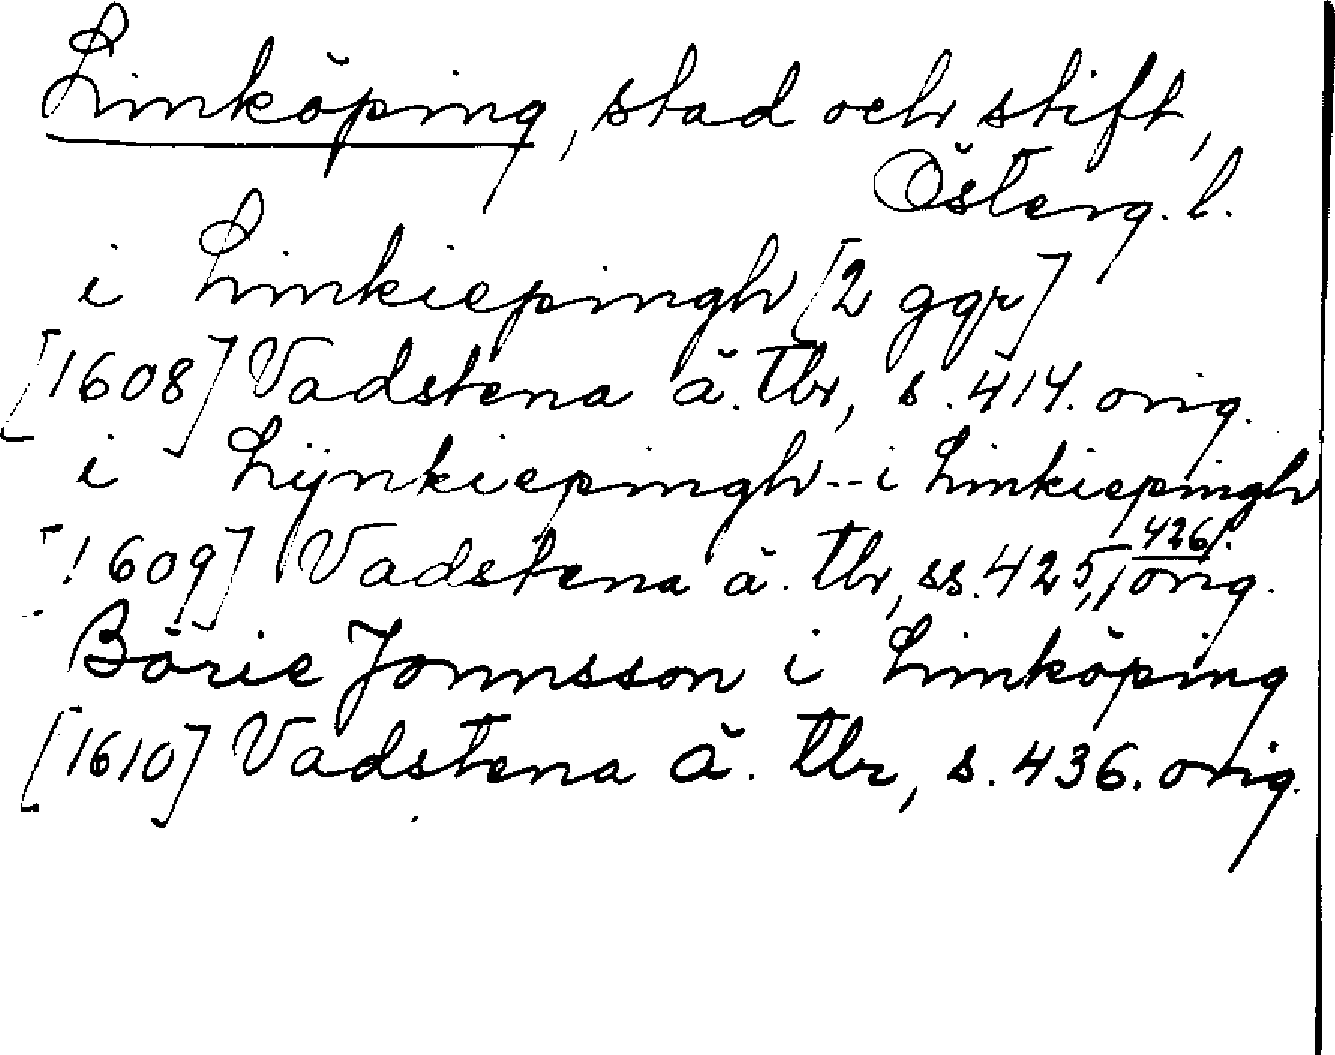 Linköping, stad och stift,
Österg. l.
i Linkiepingh [2 ggr]
[1608] Vadstena ä. tb, s. 414. orig.
i Lijnkiepingh -- i Linkiepingh
[1609] Vadstena ä. tb, ss. 425, 426. orig.
Börie Jonnsson i Linköping
[1610] Vadstena ä. tb, s. 436. orig.